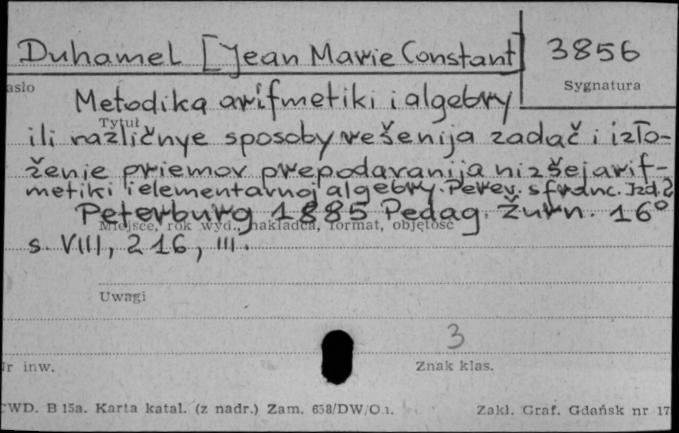 Duhamel [Jean Marie Constant] 3856
asło Sygnatura
Metodika arifmetiki i algebry
Tytuł
ili različnye sposoby rešenija zadač i izło-
ženie priemov prepodavanija nizšej arif-
metiki i elementarnoj algebry. Perev. s franc. Izd. 2
Peterburg 1885 Pedag. Žurn. 16°
Miejsce, rok wyd., nakładca, format, objętość
s. VIII, 216, III.
Uwagi
3
Nr inw. Znak klas.
CWD. B 15a. Karta katal. (z nadr.) Zam. 658/DW/O1. Zakł. Graf. Gdańsk nr 17